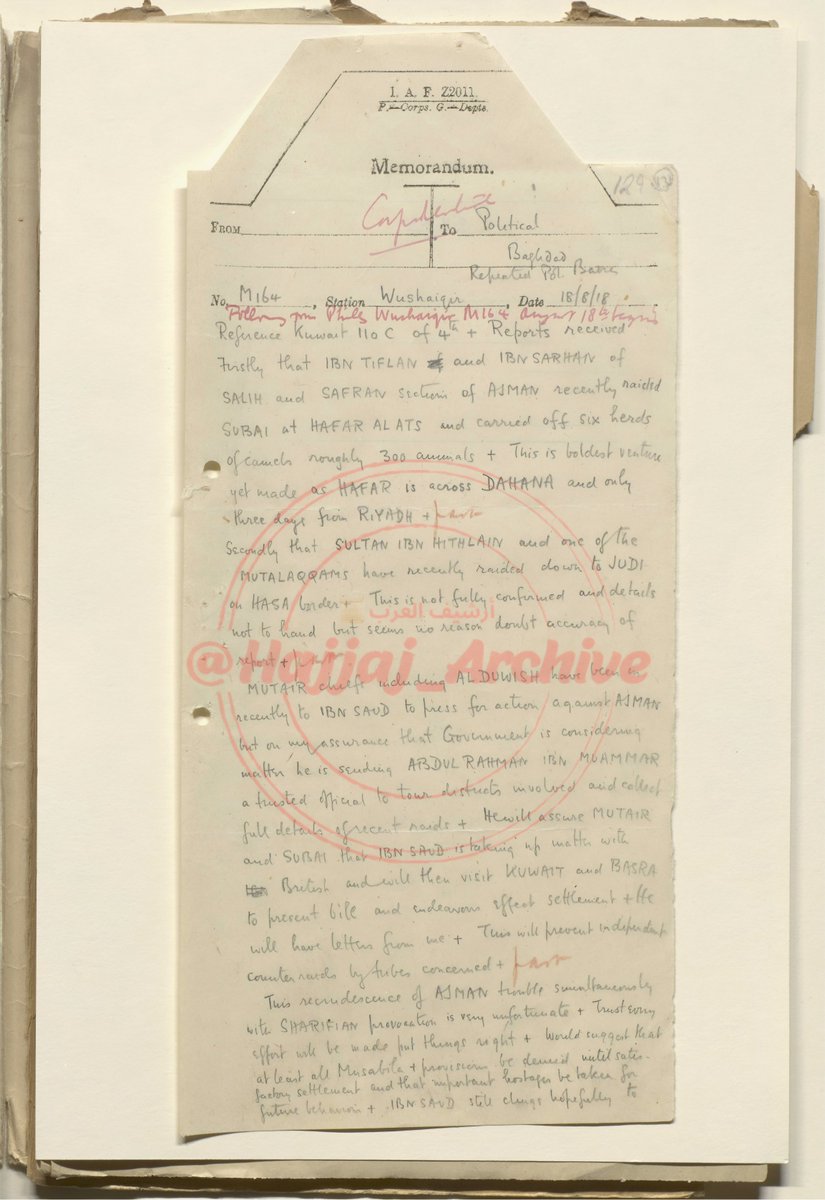 I. A. F. Z2011.
F.—Corps. G.—Depts.
Memorandum.
129
Confidential
FROM
To Political
Baghdad
Repeated Pol. Basra
No. M164, Station Wushaiqir, Date 18/8/18
Following from Philby Wushaiqir M164 August 18th begins
Reference Kuwait 110 C of 4th + Reports received
Firstly that IBN TIFLAN and IBN SARHAN of
SALIH and SAFRAN sections of AJMAN recently raided
SUBAI at HAFAR AL ATS and carried off six herds
of camels roughly 300 animals + This is boldest venture
yet made as HAFAR is across DAHANA and only
three days from RIYADH + para
Secondly that SULTAN IBN HITHLAIN and one of the
MUTALAQQAMS have recently raided down to JUDI
on HASA border + This is not fully confirmed and details
أرشيف العرب
not to hand but seems no reason doubt accuracy of
report + para
@Hajjaj_Archive
MUTAIR chiefs including AL DUWISH have been in
recently to IBN SAUD to press for action against AJMAN
but on my assurance that Government is considering
matter he is sending ABDUL RAHMAN IBN MUAMMAR
a trusted official to tour districts involved and collect
full details of recent raids + He will assure MUTAIR
and SUBAI that IBN SAUD is taking up matter with
British and will then visit KUWAIT and BASRA
to present bill and endeavour effect settlement + He
will have letters from me + This will prevent independent
counter raids by tribes concerned + para
This recrudescence of AJMAN trouble simultaneously
with SHARIFIAN provocation is very unfortunate + Trust every
effort will be made put things right + Would suggest that
at least all Musabila + provisions be denied until satis-
factory settlement and that important hostages be taken for
future behaviour + IBN SAUD still clings hopefully to